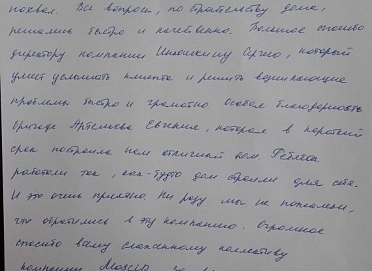 похвал. Все вопросы, по строительству дома,
решались быстро и качественно. Большое спасибо
директору компании Сергею, который
умеет услышать клиента и решить возникающие
проблемы быстро и грамотно особая благодарность
бригаде Артемьева Евгения, которая в короткий
срок построила нам отличный дом. Ребята
работали так, как-будто дом строили для себя.
И это очень приятно. Ни разу мы не пожалели,
что обратились в эту компанию. Огромное
спасибо вашему слаженному коллективу
компании